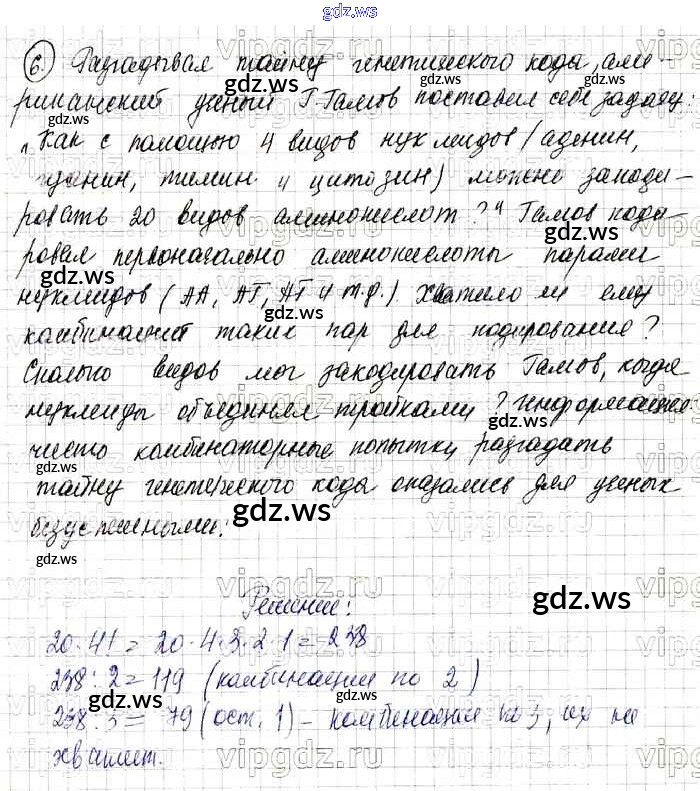 gdz.ws
6. Разгадывая тайну генетического кода, аме-
риканский ученый Г. Гамов поставил себе задачу:
„Как с помощью 4 видов нуклеидов (аденин,
гуанин, тимин и цитозин) можно закоди-
ровать 20 видов аминокислот?" Гамов коди-
ровал первоначально аминокислоты парами
нуклеидов (АА, АТ, АГ и т.д.). Хватило ли ему
комбинаций таких пар для кодирования?
Сколько видов мог закодировать Гамов, когда
нуклеиды объединял тройками?
чисто комбинаторные попытки разгадать
тайну генетического кода оказались для ученых
безуспешными.
Решение:
20·4! = 20·4·3·2·1 = 238
238:2 = 119 (комбинации по 2)
238:3 = 79 (ост. 1) – комбинация по 3, их не
хватает.